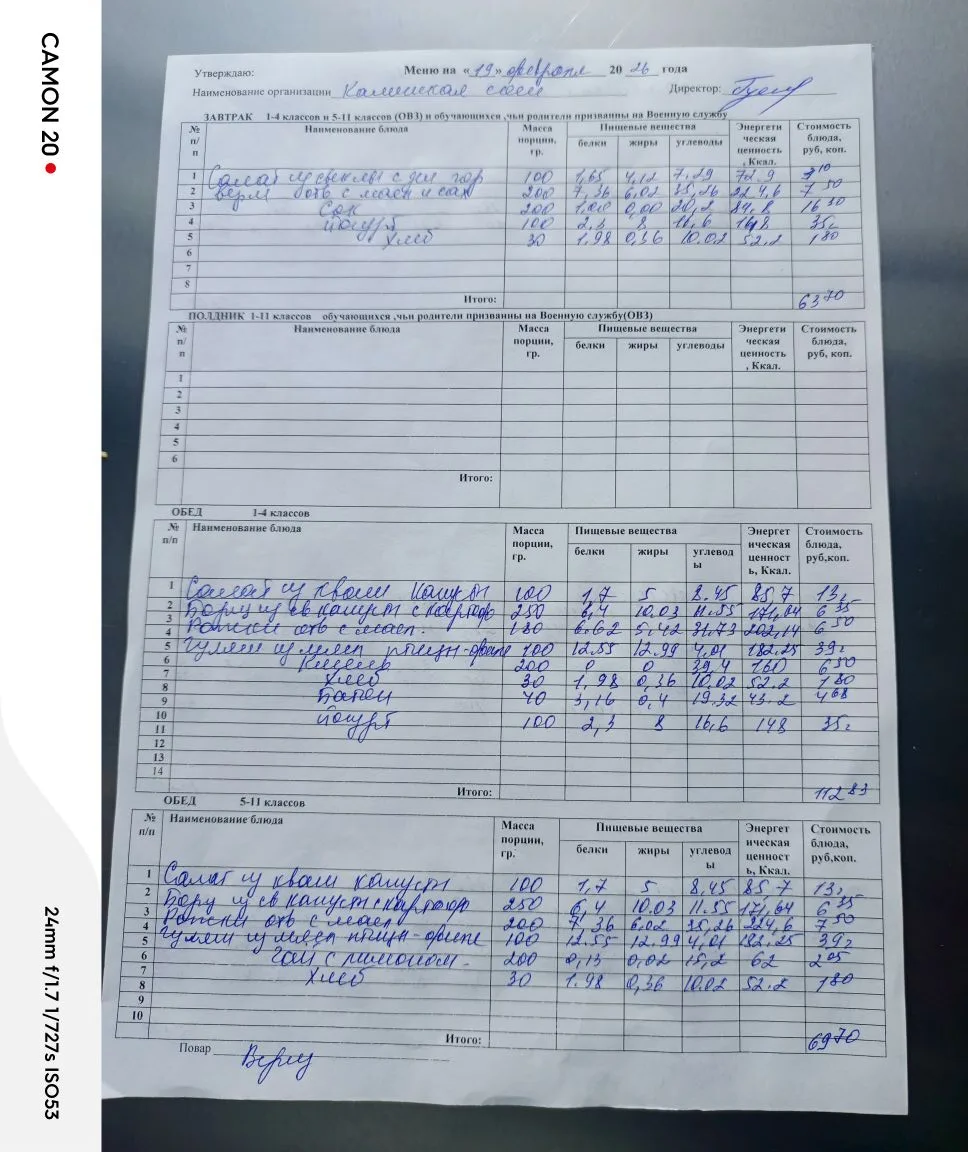 CAMON 20
24mm f/1.7 1/727s ISO53
Утверждаю: Меню на «19» февраля 20 26 года
Наименование организации Калинская сош Директор:
ЗАВТРАК 1-4 классов и 5-11 классов (ОВЗ) и обучающихся ,чьи родители призваны на Военную службу
№ п/п Наименование блюда Масса порции, гр. Пищевые вещества белки жиры углеводы Энергетическая ценность, Ккал. Стоимость блюда, руб, коп.
1 Салат из свеклы с зел гор 100 1,65 4,12 7.29 72.9 3 10
2 верм отв с масл и сах 200 7,36 6.02 35,26 224,6 7 50
3 Сок 200 1,00 0,00 20,2 84,8 16 30
4 йогурт 100 2,3 8 16,6 148 35-
5 Хлеб 30 1.98 0,36 10.02 52.2 1 80
6
7
8
Итого: 63 70
ПОЛДНИК 1-11 классов обучающихся ,чьи родители призванны на Военную службу(ОВЗ)
№ п/п Наименование блюда Масса порции, гр. Пищевые вещества белки жиры углеводы Энергетическая ценность, Ккал. Стоимость блюда, руб, коп.
1
2
3
4
5
6
Итого:
ОБЕД 1-4 классов
№ п/п Наименование блюда Масса порции, гр. Пищевые вещества белки жиры углеводы Энергетическая ценность, Ккал. Стоимость блюда, руб,коп.
1 Салат из кваш капусты 100 1,7 5 8.45 85,7 13,-
2 Борщ из св капуст с картоф 250 6,4 10.03 11.55 171,64 6 35
3 Рожки отв с масл. 180 6.62 5,42 31.73 202,14 6 50
4
5 Гуляш из мяса птицы-филе 100 12.55 12.99 4,01 182.25 39-
6 Кисель 200 0 0 39,4 160 6 50
7 Хлеб 30 1,98 0,36 10,02 52.2 1 80
8 Батон 40 3,16 0,4 19.32 43.2 4 68
9
10 йогурт 100 2,3 8 16,6 148 35-
11
12
13
14
Итого: 112 83
ОБЕД 5-11 классов
№ п/п Наименование блюда Масса порции, гр. Пищевые вещества белки жиры углеводы Энергетическая ценность, Ккал. Стоимость блюда, руб,коп.
1 Салат из кваш капусты 100 1,7 5 8,45 85,7 13,-
2 Борщ из св капуст с картоф 250 6,4 10.03 11.55 171,64 6 35
3 Рожки отв с масл 200 7,36 6.02 35,26 224,6 7 50
4 Гуляш из мяса птицы-филе 100 12.55 12.99 4,01 182.25 39-
5
6 Чай с лимоном. 200 0,13 0,02 15,2 62 2 05
7 Хлеб 30 1.98 0,36 10.02 52.2 1 80
8
9
10
Итого: 69 70
Повар